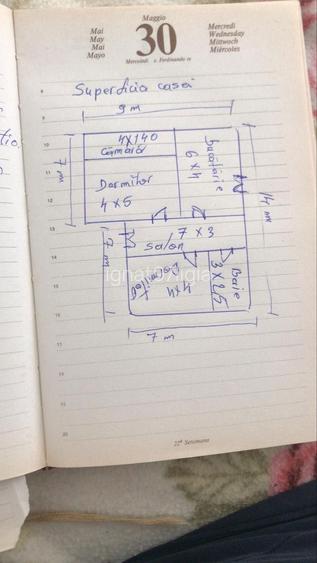 Mai
May
Mai
Mayo
Maggio
30
Mercoledì s. Ferdinando re
Mercredi
Wednesday
Mittwoch
Miércoles
Superficia casei
9 m
4X140
Camara
Dormitor
4 x 5
Bucătărie
6 x 4
7 m
14 m
7 x 3
Salon
7 m
4x4
Baie
3 X 2,5
7 m
ignatoxigla
8
9
10
11
12
13
14
15
16
17
18
19
20
22ª Settimana